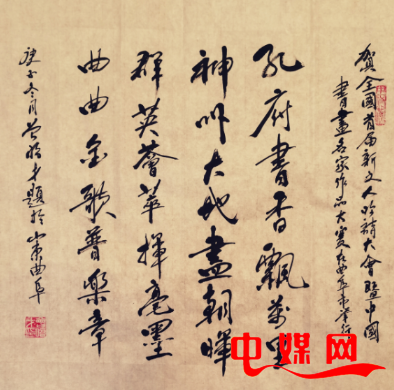 贺全國首届新文人吟大會暨中國
書畫名家作品大賽在曲阜市举行
孔府書香飄萬里
神州大地盡朝暉
群英薈萃揮毫墨
曲曲金歌普樂章
庚子冬月題於山東曲阜
中媒网